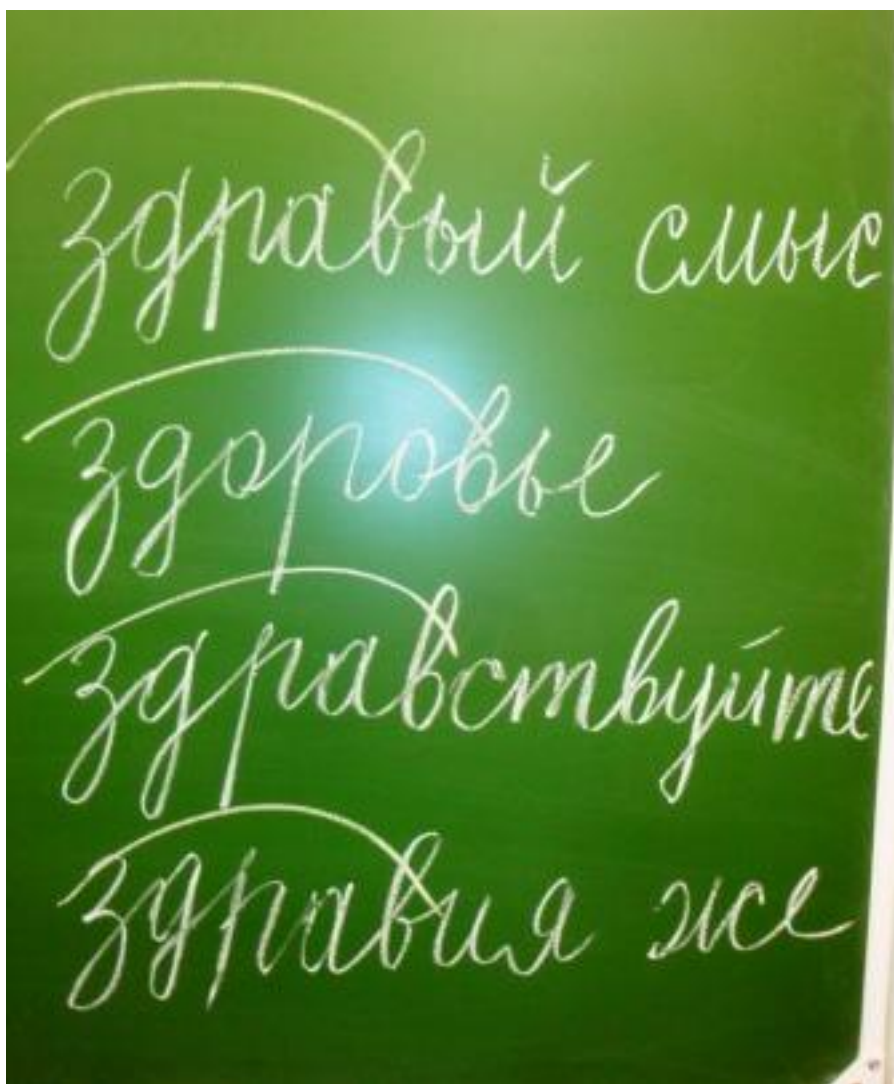 здравый смыс
здоровье
здравствуйте
здравия же